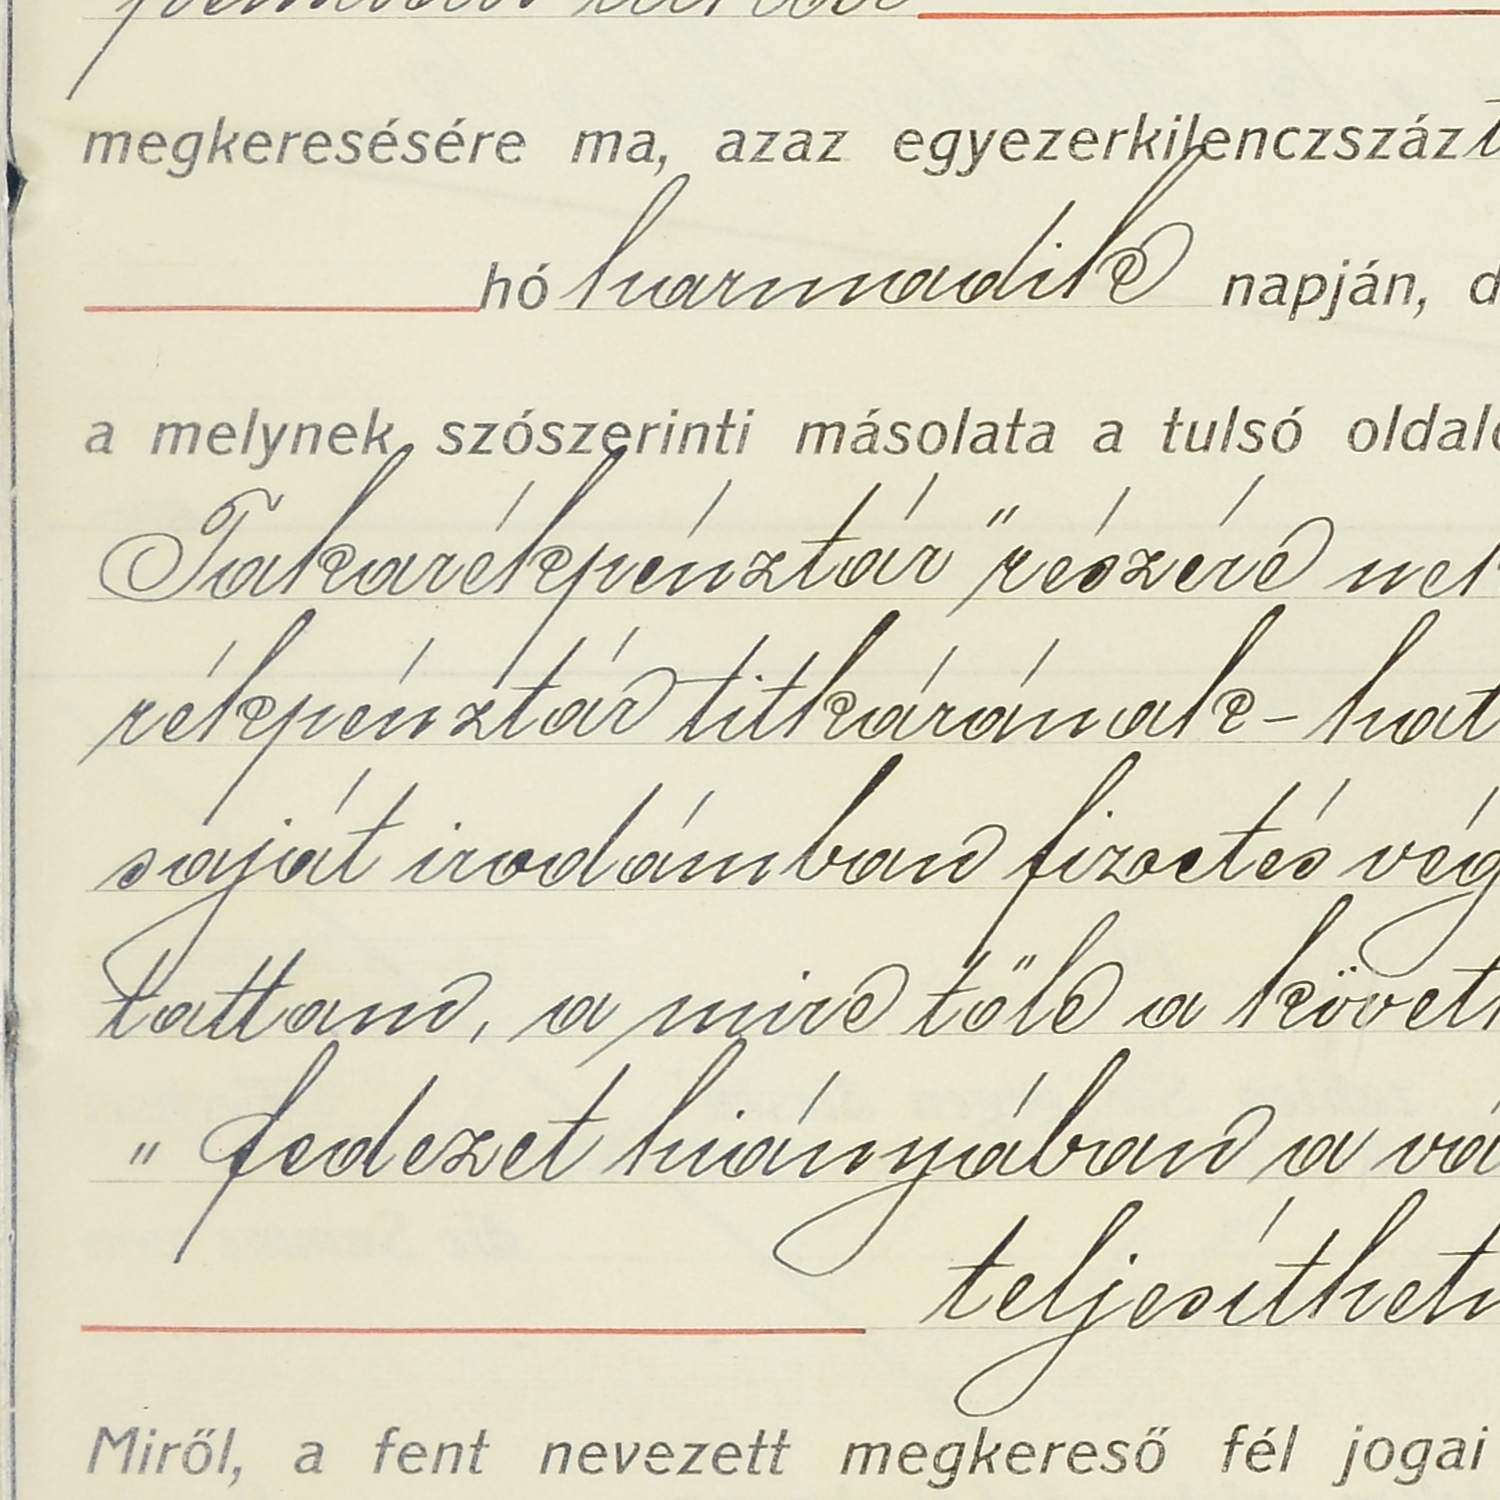 megkeresésére ma, azaz egyezerkilenczszáz
hó harmadik napján, d
a melynek szószerinti másolata a tulsó oldal
Takarékpénztár" részére nek
rékpénztár titkárának - hat
saját irodámban fizetés vég
tattam, a mire tőle a követk
" fedezet hiányában a vá
teljesíthet
Miről, a fent nevezett megkereső fél jogai